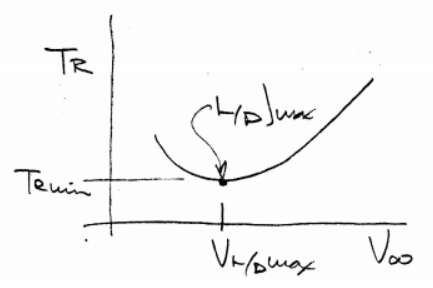 TR
L/D)max
TRmin
VL/Dmax
V∞